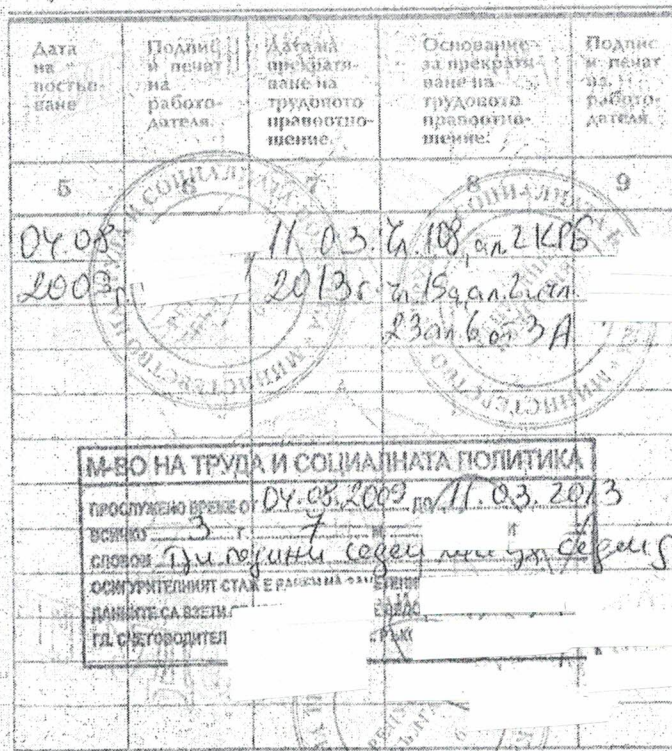 Дата на постъпване
Подпис и печат на работодателя
Дата на прекратяване на трудовото правоотношение
Основание за прекратяване на трудовото правоотношение
Подпис и печат на работодателя
5 6 7 8 9
04.08 11.03. Чл. 108, ал. 2 КРБ
2009 г. 2013 г.
23 ал. 6 от ЗА
М-ВО НА ТРУДА И СОЦИАЛНАТА ПОЛИТИКА
ПРОСЛУЖЕНО ВРЕМЕ ОТ 04.08.2009 ДО 11.03.2013
ВСИЧКО 3 г. 7 м
СЛОВОМ Три години седем
ОСИГУРИТЕЛНИЯТ СТАЖ Е
ДАННИТЕ СА ВЗЕТИ
ГЛ. СЧЕТОВОДИТЕЛ